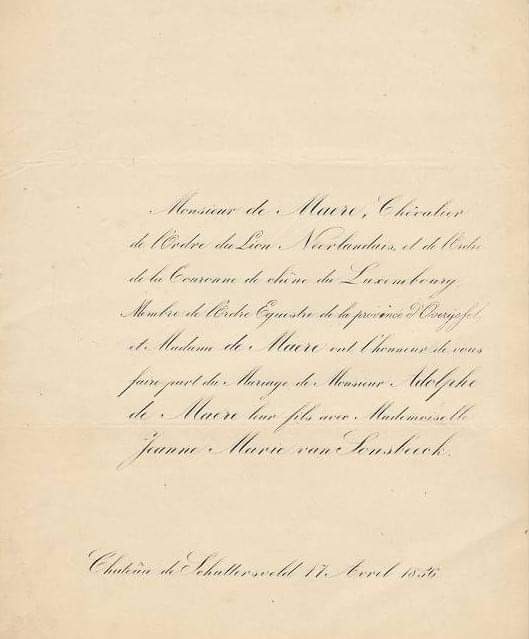 Monsieur de Maere, Chevalier
de l'Ordre du Lion Néerlandais, et de l'Ordre
de la Couronne de chêne du Luxembourg.
Membre de l'Ordre Equestre de la province d'Overijssel
et Madame de Maere ont l'honneur de vous
faire part du Mariage de Monsieur Adolphe
de Maere leur fils avec Mademoiselle
Jeanne Marie van Sonsbeeck.
Château de Schuttersveld 17 Avril 1856